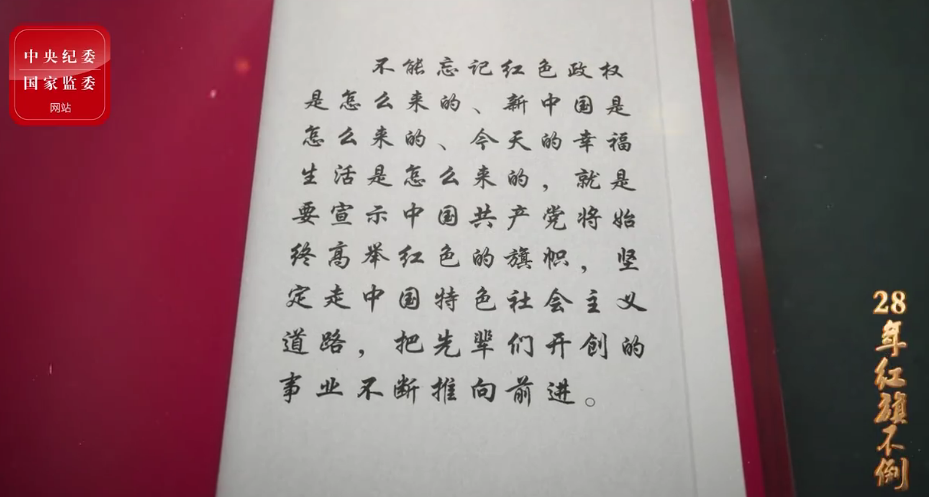 中央纪委
国家监委
网站
不能忘记红色政权
是怎么来的、新中国是
怎么来的、今天的幸福
生活是怎么来的，就是
要宣示中国共产党将始
终高举红色的旗帜，坚
定走中国特色社会主义
道路，把先辈们开创的
事业不断推向前进。
28
年
红
旗
不
倒